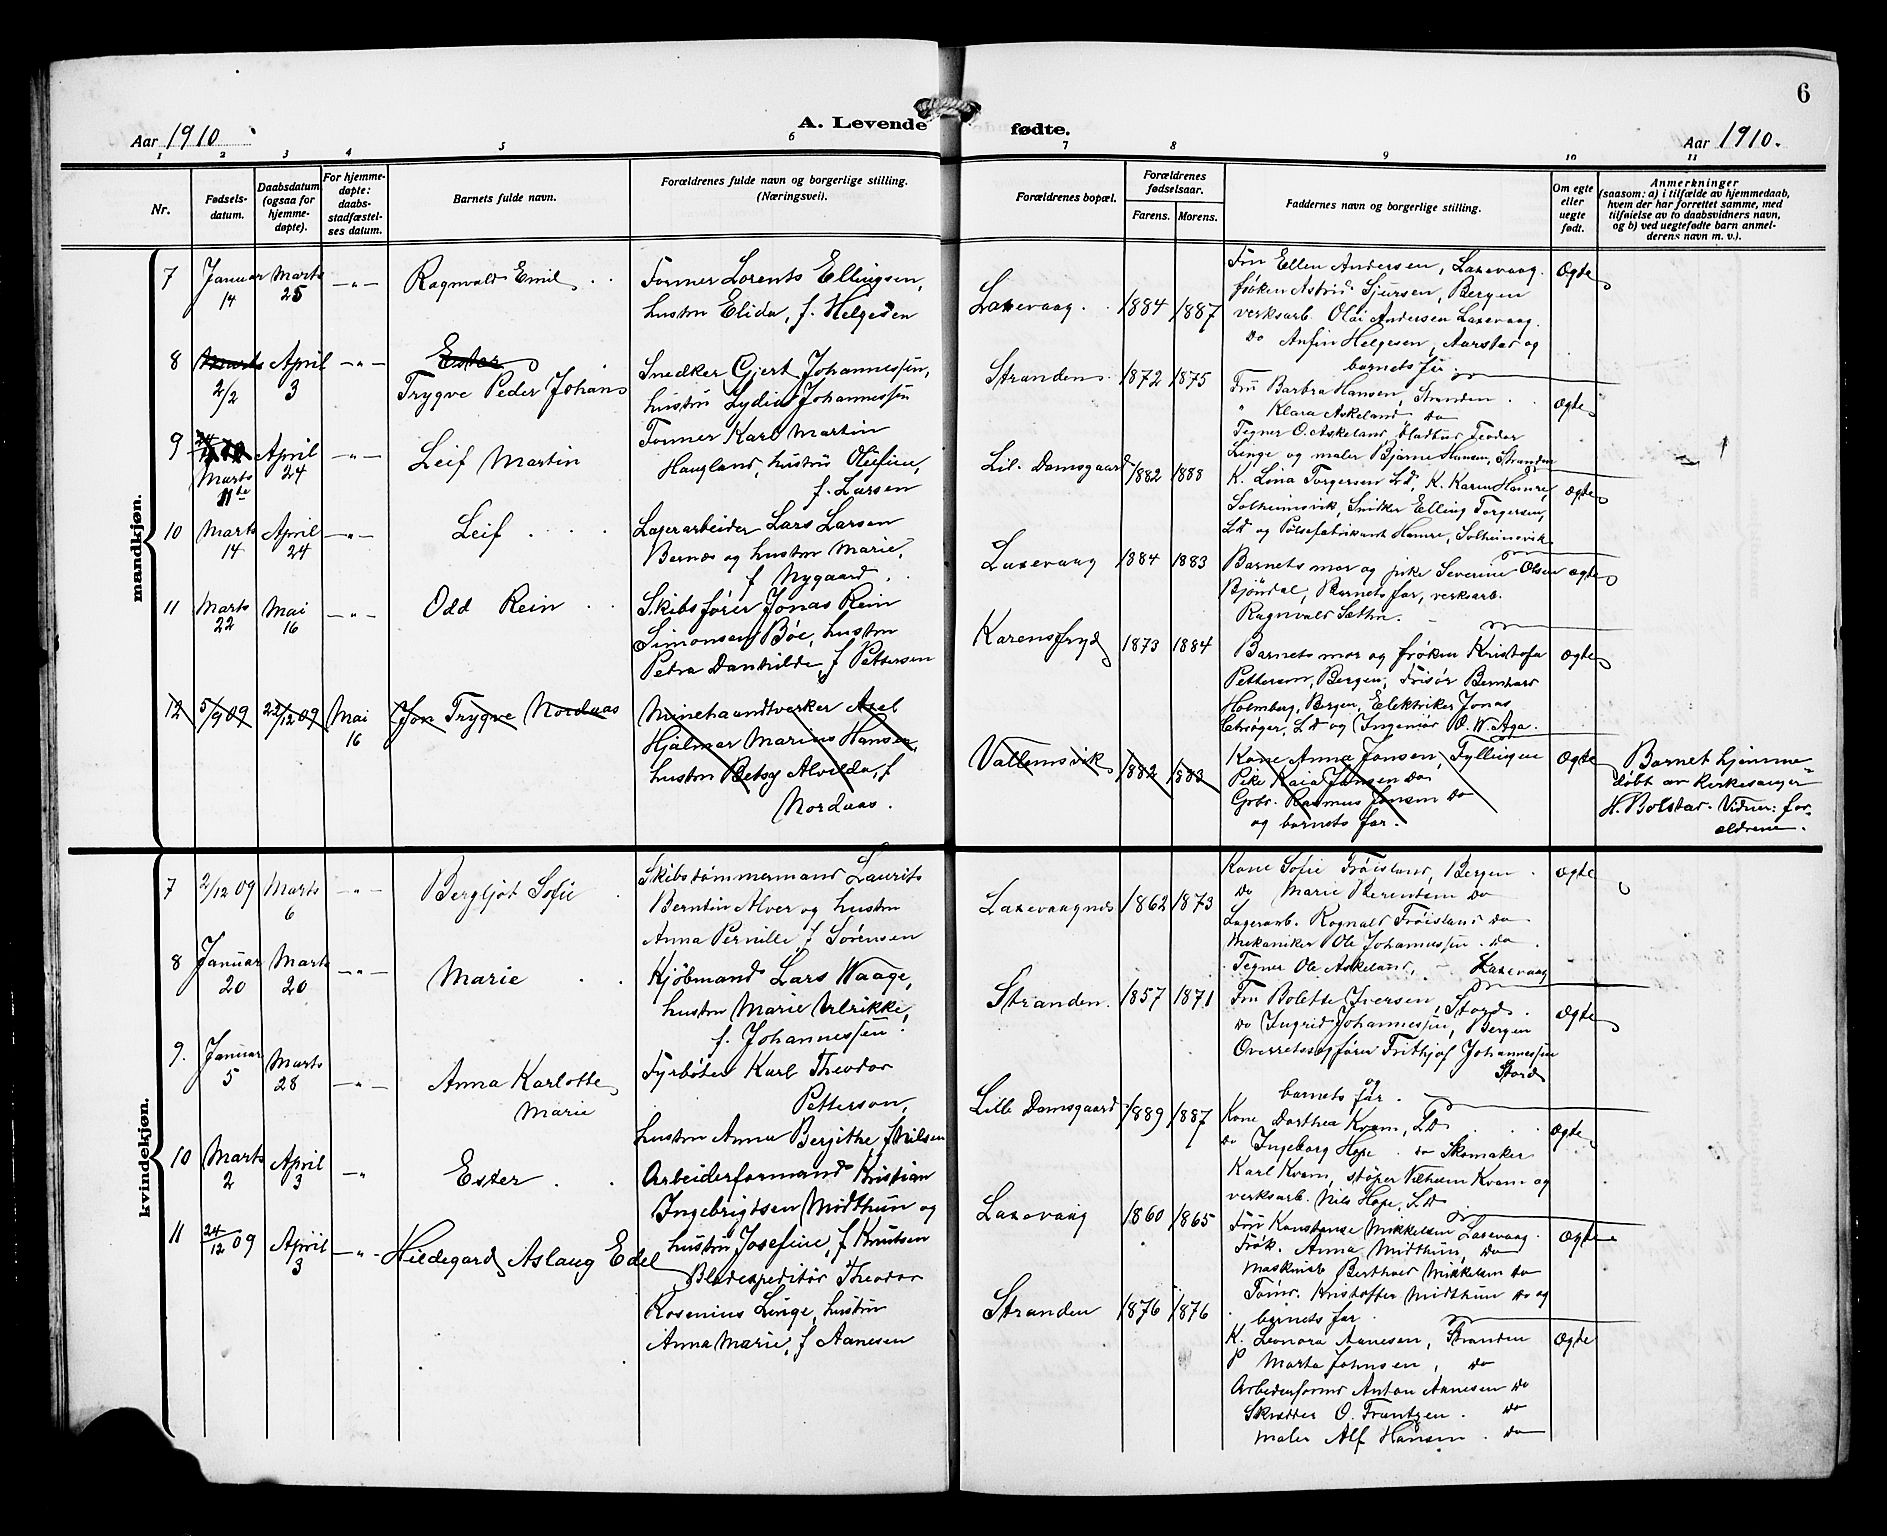 6
Aar 1910
A. Levende fødte.
Aar 1910.
1 2 3 4 5 6 7 8 9 10 11
Nr.
Fødsels-
datum.
Daabsdatum
(ogsaa for
hjemme-
døpte).
For hjemme-
døpte:
daabs-
stadfæstel-
ses datum.
Barnets fulde navn.
Forældrenes fulde navn og borgerlige stilling.
(Næringsvei).
Forældrenes bopæl.
Forældrenes
fødselsaar.
Farens. Morens.
Faddernes navn og borgerlige stilling.
Om egte
eller
uegte
født.
Anmerkninger
(saasom: a) i tilfælde av hjemmedaab,
hvem der har forrettet samme, med
tilføielse av to daabsvidners navn,
og b) ved uegtefødte barn anmel-
derens navn m. v.).
mandkjøn.
7
Januar
14
Marts
25
-„-
Ragnvald Emil
Former Lorents Ellingsen,
hustru Elida, f. Helgesen
Laxevaag
1884
1887
Fru Ellen Andersen, Laxevaag.
frøken Astrid Sjursen, Bergen
verksarb. Olai Andersen Laxevaag.
Do Anfin Helgesen, Aarstad og
barnets far
Ægte
8
Marts
2/2
April
3
-„-
Ester
Trygve Peder Johans
Snedker Gjert Johannessen,
hustru Lydia Johannessen
Stranden
1872
1875
Fru Barbra Hansen, Stranden
" Klara Askeland Do
Tegner O. Askeland, Theodor
Linge og maler Bjarne Hansen, Stranden
Ægte
9
Marts
11te
April
24
-„-
Leif Martin
Former Karl Martin
Haugland, hustru Olefine,
f. Larsen
Lil. Damsgaard
1882
1888
K. Lina Torgersen Ld, K. Karen Hamre,
Solheimsvik, Snitker Elling Torgersen,
Ld og Pølsefabrikant Hamre, Solheimsvik
Ægte
10
Marts
14
April
24
-„-
Leif
Lagerarbeider Lars Larsen
Bernes og hustru Marie,
f Nygaard
Laxevaag
1884
1883
Barnets mor og pike Severine Olsen
Bjöndal, Barnets far, verksarb.
Ragnvald Sæthre.
Ægte
11
Marts
22
Mai
16
-„-
Odd Rein
Skibsfører Jonas Rein
Simonsen Böe, hustru
Petra Danhilde, f Pettersen
Karensfryd
1873
1884
Barnets mor og frøken Kristofa
Petterson, Bergen, Frisör Bernhard
Holmberg, Bergen, Elektriker Jonas
Ld og Ingeniør O. W. Aga.
Ægte
12
5/9 09
22/12 09
Mai
16
Jon Trygve Nordaas
Minehaandtverker Axel
Hjalmar Marius Hansen,
hustru Betsy Alvilda, f
Nordaas.
Vallemsvik
1882
1883
Kone Anna Jansen, Fyllingen
Pike Kaia Jansen Do
Grbr. Rasmus Jansen Do
og barnets far.
Ægte
Barnet hjemme-
døbt av kirkesanger
H. Bolstad. Vidner: for-
ældrene.
kvindekjøn.
7
2/12 09
Marts
6
-„-
Bergljot Sofie
Skibstömmermand Laurits
Berntin Alver og hustru
Anna Pernille f Sørensen
Laxevaagnes
1862
1873
Kone Sofie Fröisland, Bergen
Do Marie Berentsen Do
Lagerarb. Rognald Fröisland Do
Mekaniker Ole Johannessen Do
Tegner Ole Askeland, Laxevaag
Ægte
8
Januar
20
Marts
20
-„-
Marie
Kjöbmand Lars Waage,
hustru Marie Ulrikke,
f. Johannessen.
Stranden
1857
1871
Fru Bolette Iversen, Stord.
Do Ingrid Johannessen, Bergen
Overretssagfører Frithjof Johannessen
Stord
og
barnets far.
Ægte
9.
Januar
5
Marts
28
-„-
Anna Karlotte
Marie
Fyrböter Karl Theodor
Petterson,
hustru Anna Bergithe f Nilsen
Lille Damsgaard
1889
1887
Kone Dorthea Kvam, LD
Do Ingeborg Hope Do Skomaker
Karl Kvam, støper Vilhelm Kvam og
verksarb. Nils Hope, LD
Ægte
10
Marts
2
April
3
-„
Ester
Arbeiderformand Kristian
Ingebrigtsen Midthun og
hustru Josefine, f Knutsen
Laxevaag
1860
1865
Fru Konstanse Mikkelsen Laxevaag
Frök. Anna Midthun, Do
Maskinarb Berthold Mikkelsen Do
Tömr. Kristoffer Midthun Do og
barnets far
Ægte
11
24/12 09
April
3
-„-
Hildegard Aslaug Edel
Bladexpeditör Theodor
Rosenius Linge, hustru
Anna Marie, f Aanesen
Stranden
1876
1876
K. Leonora Aanesen, Stranden
P Marta Johnsen, Do
Arbeiderformd Anton Aanesen Do
Skrædder O. Frantzen. Do
maler Alf Hansen. Do
Ægte